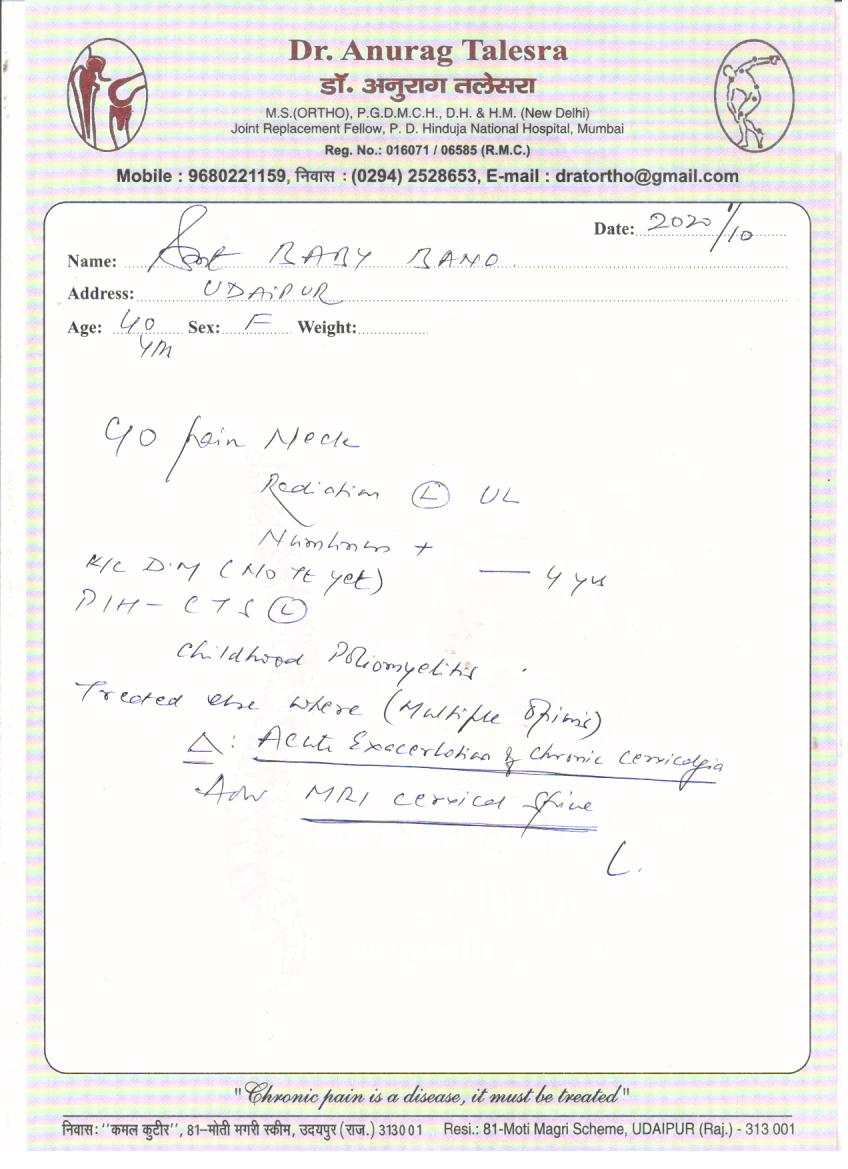 Dr. Anurag Talesra
डॉ. अनुराग तलेसरा
M.S.(ORTHO), P.G.D.M.C.H., D.H. & H.M. (New Delhi)
Joint Replacement Fellow, P. D. Hinduja National Hospital, Mumbai
Reg. No.: 016071 / 06585 (R.M.C.)
Mobile : 9680221159, निवास : (0294) 2528653, E-mail : dratortho@gmail.com
Date: 2020 1/10
Name: Smt BABY BANO
Address: UDAIPUR
Age: 40 Sex: F Weight:
yrs
C/O pain Neck
Radiation Ⓛ UL
Numbness +
K/C D.M (No Tt yet) — 4 yrs
P/H - CTS Ⓛ
Childhood Poliomyelitis
Treated else where (Multiple
Δ: Acute Exacerbation of Chronic cervicalgia
Adv MRI cervical Spine
"Chronic pain is a disease, it must be treated"
निवास: ''कमल कुटीर'', 81–मोती मगरी स्कीम, उदयपुर (राज.) 313001 Resi.: 81-Moti Magri Scheme, UDAIPUR (Raj.) - 313 001